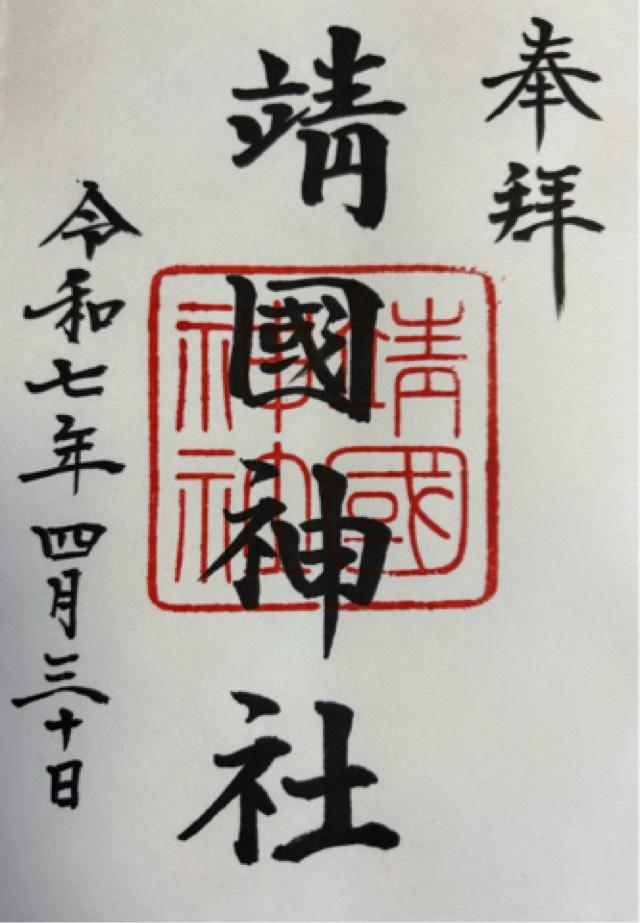 奉拝
靖國神社
靖國神社
令和七年四月三十日